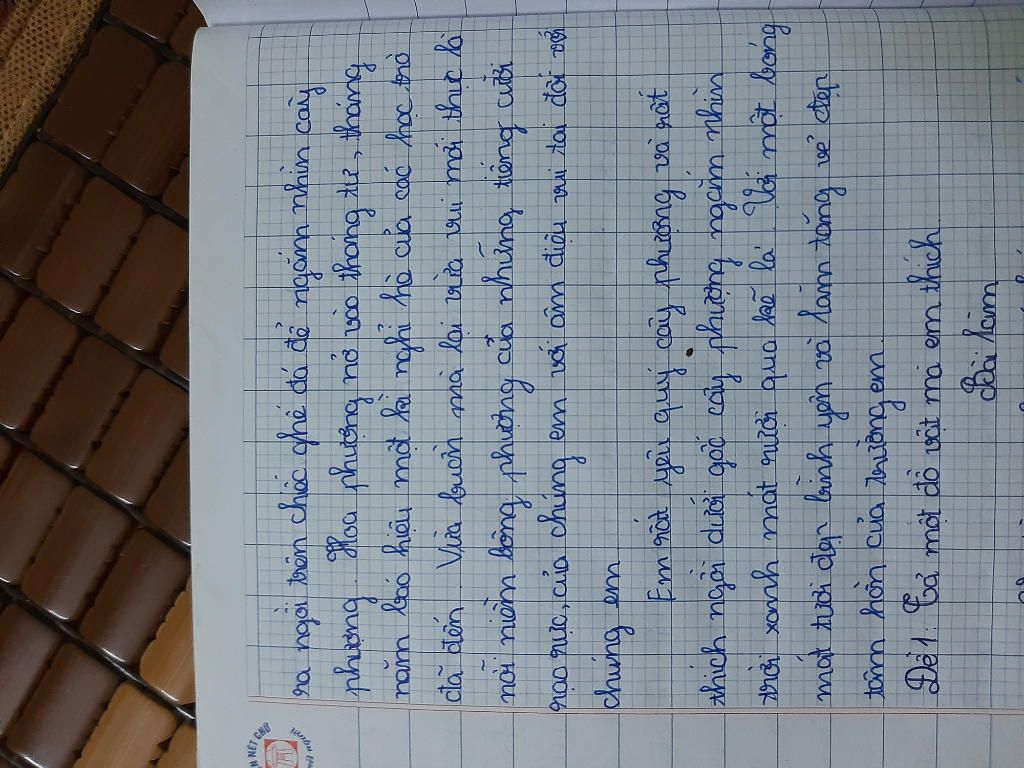 ra ngồi trên chiếc ghế đá để ngắm nhìn cây
phượng. Hoa phượng nở vào tháng tư, tháng
năm báo hiệu một kì nghỉ hè của các học trò
đã đến. Vừa buồn mà lại vừa vui mới thực là
nỗi niềm bông phượng của những tiếng cười
rạo rực, của chúng em với âm điệu vui tai đối với
chúng em
Em rất yêu quý cây phượng và rất
thích ngồi dưới gốc cây phượng ngắm nhìn
trời xanh mát rượi qua kẽ lá. Với một bóng
mát tươi đẹp bình yên và lắm tăng vẻ đẹp
tâm hồn của trường em.
Đề 1: Tả một đồ vật mà em thích.
Bài làm
NÉT CHỮ